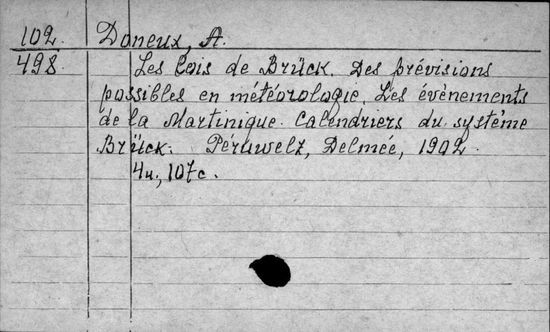 102. Daneux, A.
498. Les lois de Brück. Des prévisions
possibles en météorologie. Les évènements
de la Martinique. Calendriers du système
Brück. Péruwelz, Delmée, 1902.
4н., 107с.